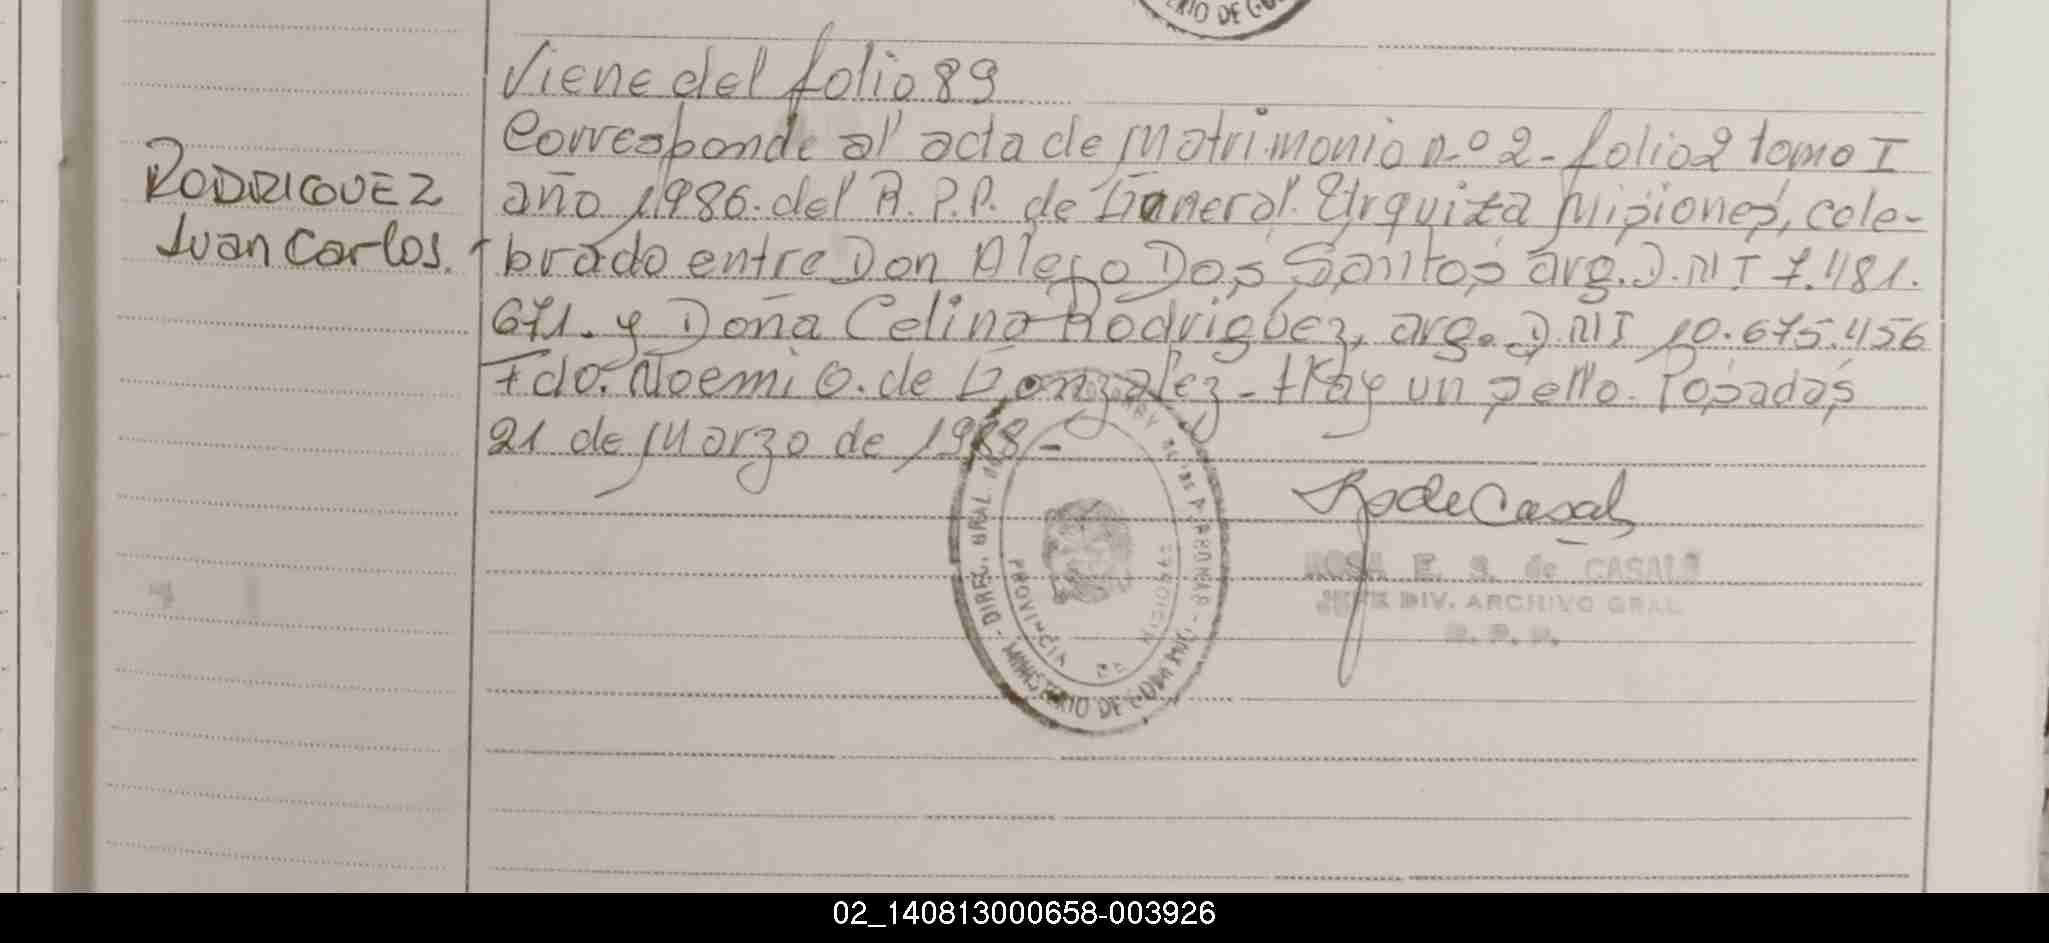 RIO DE GO
Viene del folio 89
Corresponde al acta de Matrimonio n.º 2 - folio 2 tomo I
RODRIGUEZ
año 1986. del R.P.P. de General Urquiza Misiones, cele-
Juan Carlos.
brado entre Don Alejo Dos Santos arg. D.NI 7.481.
671. y Doña Celina Rodriguez, arg. D.NI 10.675.456
Fdo. Noemi O. de Gonzalez - Hay un sello. Posadas
21 de Marzo de 1988 -
RodeCasals
ROSA E. S. de CASALS
JEFE DIV. ARCHIVO GRAL.
R. P. P.
DIREC. GRAL. DE
PERSONAS
PROVINCIA DE MISIONES
MINISTERIO DE GOBIERNO
02_140813000658-003926